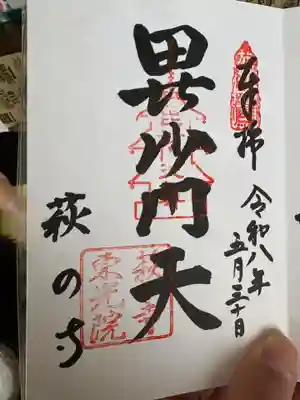 奉拝
令和八年
五月三十日
毘沙門天
萩の寺
萩寺
東光院